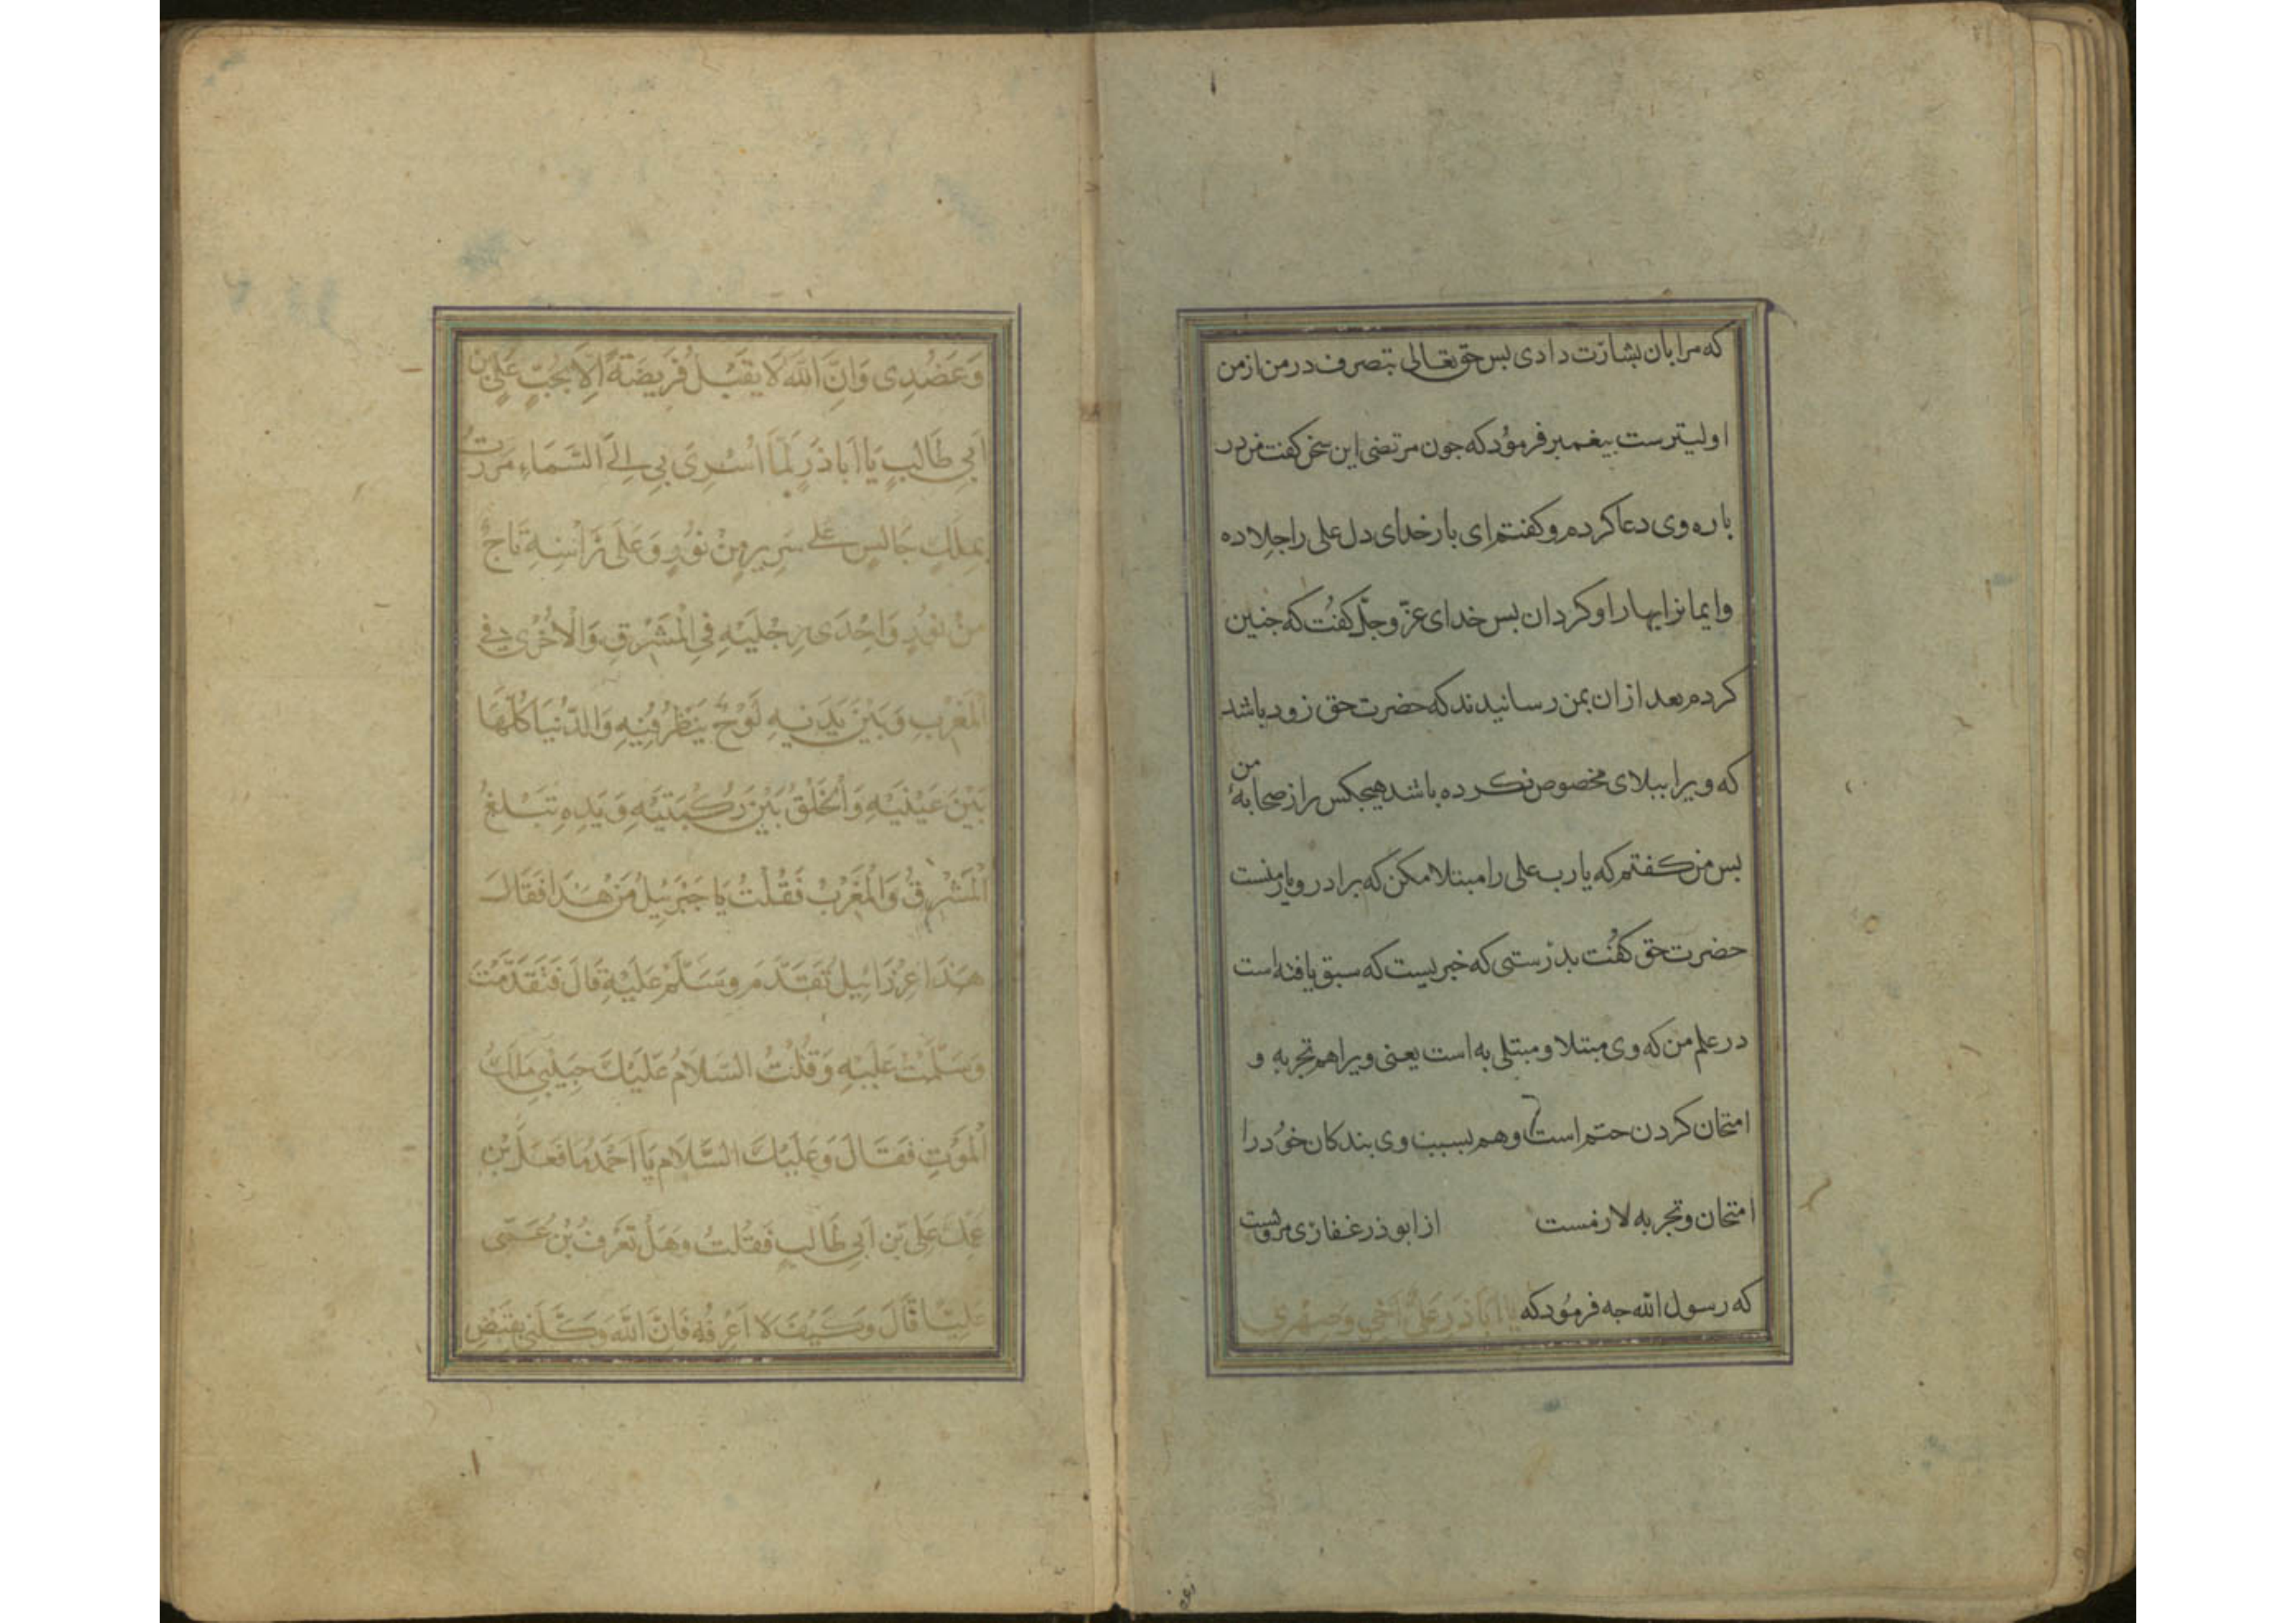 که مرا بان بشارت دادی بس حق تعالی بتصرف در من از من
اولیترست بیغمبر فرمود که جون مرتضی این سخن کفت من در
باره وی دعا کردم و کفتم ای بار خدای دل علی را جلا ده
وایمانرا بهار او کردان بس خدای عزّ وجلّ کفت که جنین
کردم بعد از ان بمن رسانیدند که حضرت حق زود باشد
که ویرا ببلای مخصوص نکرده باشد هیجکس را از صحابهٔ من
بس من کفتم که یا رب علی را مبتلا مکن که برادر و یار منست
حضرت حق کفت بدرستی که خبریست که سبق یافته است
در علم من که وی مبتلا و مبتلی به است یعنی ویرا هم تجربه و
امتحان کردن حتم است و هم بسبب وی بندکان خود را
امتحان و تجربه لازمست از ابوذر غفاری مرویست
که رسول الله جه فرمود که یا اَبَاذَر عَلیٌّ اَخی وَصِهْری
وَعَضُدِی وَاِنَّ اللّٰهَ لَا یَقْبَلُ فَرِیضَةً اِلَّا بِحُبِّ عَلِیِّ بْنِ
اَبِی طَالِبٍ یَا اَبَا ذَرٍ لَمَّا اُسْرِیَ بِی اِلَی السَّمَاءِ مَرَرْتُ
بِمَلَكٍ جَالِسٍ عَلَی سَرِیرٍ مِنْ نُورٍ وَعَلَی رَاْسِهِ تَاجٌ
مِنْ نُورٍ وَاِحْدَی رِجْلَیْهِ فِی الْمَشْرِقِ وَالْاُخْرَی فِی
الْمَغْرِبِ وَبَیْنَ یَدَیْهِ لَوْحٌ یَنْظُرُ فِیهِ وَالدُّنْیَا کُلُّهَا
بَیْنَ عَیْنَیْهِ وَالْخَلْقُ بَیْنَ رُکْبَتَیْهِ وَیَدِهِ تَبْلُغُ
الْمَشْرِقَ وَالْمَغْرِبَ فَقُلْتُ یَا جَبْرَئِیلُ مَنْ هَذَا فَقَالَ
هَذَا عِزْرَائِیلُ تَقَدَّمْ وَسَلِّمْ عَلَیْهِ قَالَ فَتَقَدَّمْتُ
وَسَلَّمْتُ عَلَیْهِ وَقُلْتُ السَّلَامُ عَلَیْكَ حَبِیبِی مَلَكَ
الْمَوْتِ فَقَالَ وَعَلَیْكَ السَّلَامُ یَا اَحْمَدُ مَا فَعَلَ بْنُ
عَمِّكَ عَلِیُّ بْنُ اَبِی طَالِبٍ فَقُلْتُ وَهَلْ تَعْرِفُ بْنَ عَمِّی
عَلِیًّا قَالَ وَکَیْفَ لَا اَعْرِفُهُ فَاِنَّ اللّٰهَ وَکَّلَنِی بِقَبْضِ